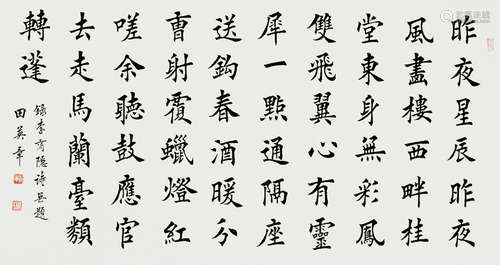 昨夜星辰昨夜
風畫樓西畔桂
堂東身無彩鳳
雙飛翼心有靈
犀一點通隔座
送鈎春酒暖分
曹射覆蠟燈紅
嗟余聽鼓應官
去走馬蘭臺類
轉蓬
錄李商隱詩无題
田英章